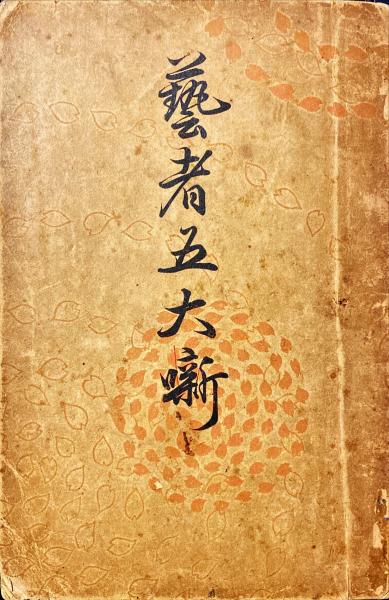 藝者五大噺